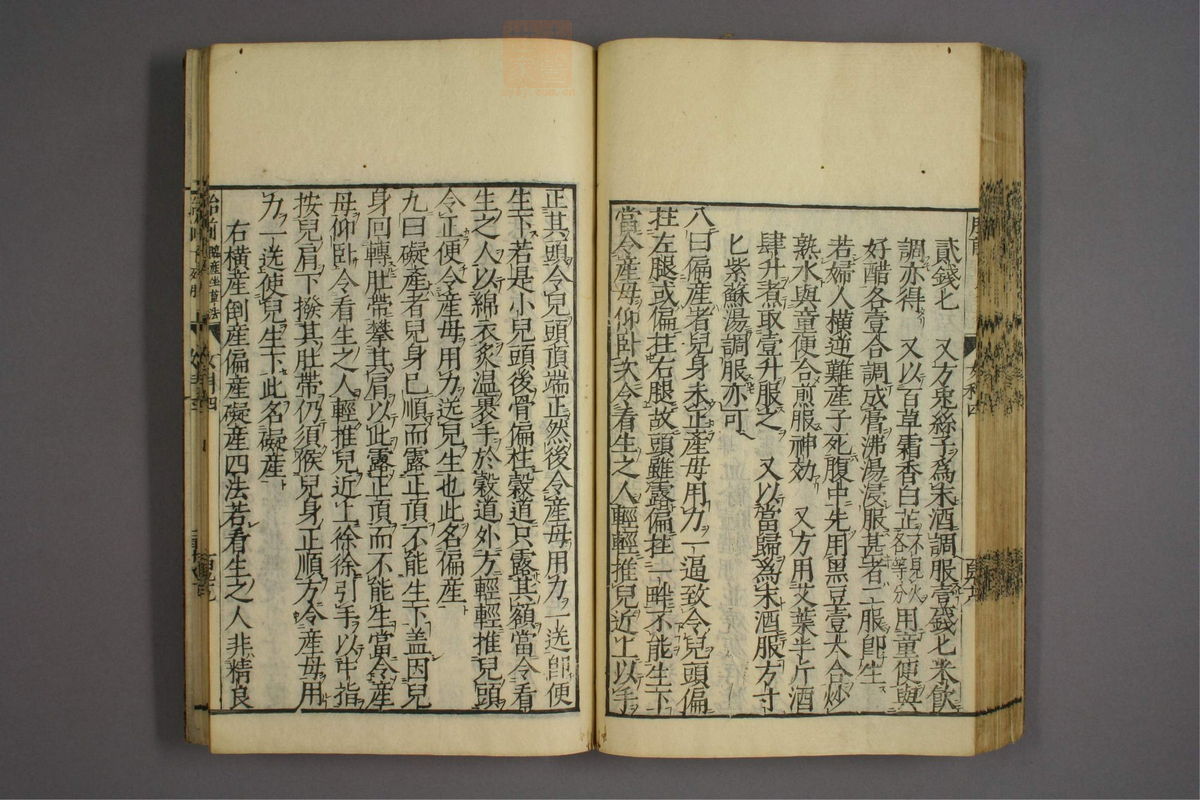 貳錢匕　又方兎絲子爲末酒調服壹錢匕米飲
調亦得　又以百草霜香白芷不見火各等分用童便與
好醋各壹合調成膏沸湯浸服甚者二服卽生
若婦人橫逆難產子死腹中先用黑豆壹大合炒
熟水與童便合煎服神効　又方用艾葉半斤酒
肆升煮取壹升服之　又以當歸爲末酒服方寸
匕紫蘇湯調服亦可
八曰偏產者兒身未正產母用力一逼致令兒頭偏
拄左腿或偏拄右腿故頭雖露偏拄一畔不能生下
當令產母仰卧次令看生之人輕輕推兒近上以手
正其頭令兒頭頂端正然後令產母用力一送卽便
生下若是小兒頭後骨偏拄穀道只露其額當令看
生之人以綿衣炙温裹手於穀道外方輕輕推兒頭
令正便令產母用力送兒生也此名偏產
九曰礙產者兒身已順而露正頂不能生下盖因兒
身回轉肚帶攀其肩以此露正頂而不能生當令產
母仰卧令看生之人輕推兒近上徐徐引手以中指
按兒肩下撥其肚帶仍須候兒身正順方令產母用
力一送使兒生下此名礙產
右橫產倒產偏產礙產四法若看生之人非精良
胎前　臨產坐草法